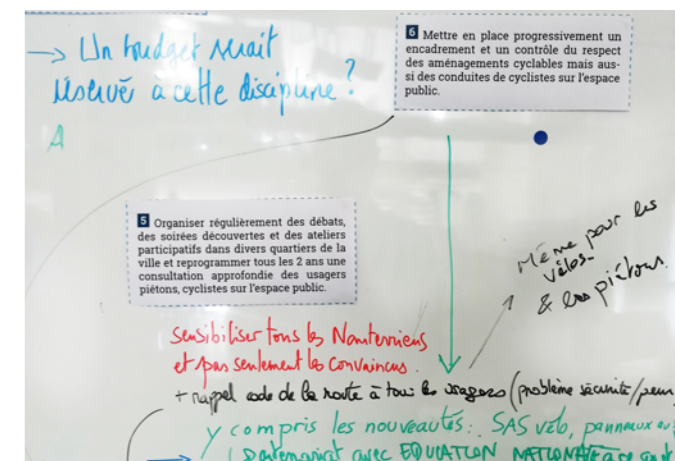 → Un budget serait
réservé à cette discipline ?
A
6 Mettre en place progressivement un
encadrement et un contrôle du respect
des aménagements cyclables mais aus-
si des conduites de cyclistes sur l'espace
public.
5 Organiser régulièrement des débats,
des soirées découvertes et des ateliers
participatifs dans divers quartiers de la
ville et reprogrammer tous les 2 ans une
consultation approfondie des usagers
piétons, cyclistes sur l'espace public.
Même pour les
vélos.
& les piétons.
Sensibiliser tous les Nanterriens
et pas seulement les convaincus.
+ rappel code de la route à tous les usagers (problème sécurité/peur
y compris les nouveautés: SAS vélo, panneaux
Partenariat avec EDUCATION NATIONALE